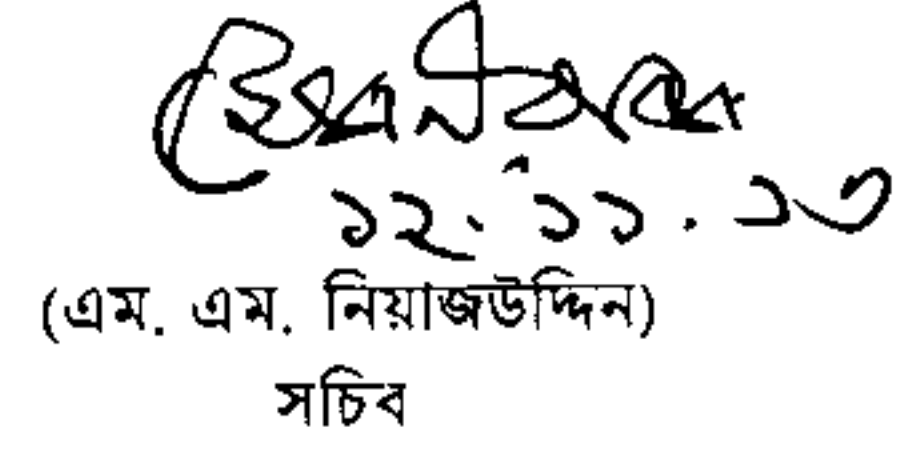 ১২.১১.১৩
(এম. এম. নিয়াজউদ্দিন)
সচিব